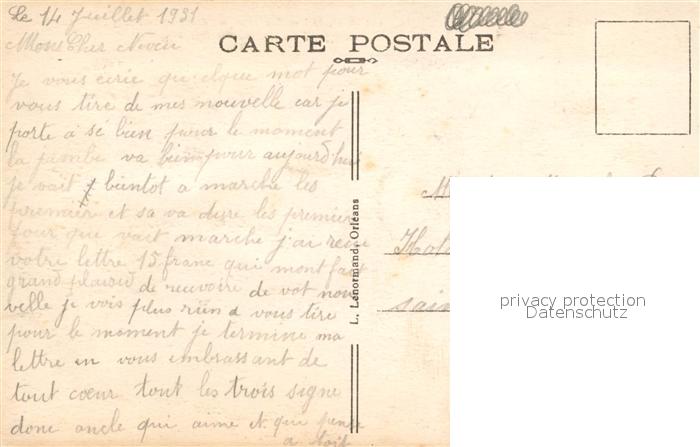 Le 14 Juillet 1931
Mons Cher Neveu
Je vous ecrie quelque mot pour
vous tire de mes nouvelle car je
porte a sé bien pour le moment
la jambe va bien pour aujourd'hui
je vait bientot a marché les
premier et sa va dure les premier
jour que vait marché j'ai reçue
votre lettre 15 franc qui mont fait
grand plaisir de recevoire de vot nou
velle je vois plus rien a vous tire
pour le moment je termine ma
lettre en vous embrassant de
tout cœur tout les trois signe
donc oncle qui aime et qui pense
a toit
CARTE POSTALE
L. Lenormand, Orléans
M
sain
privacy protection
Datenschutz